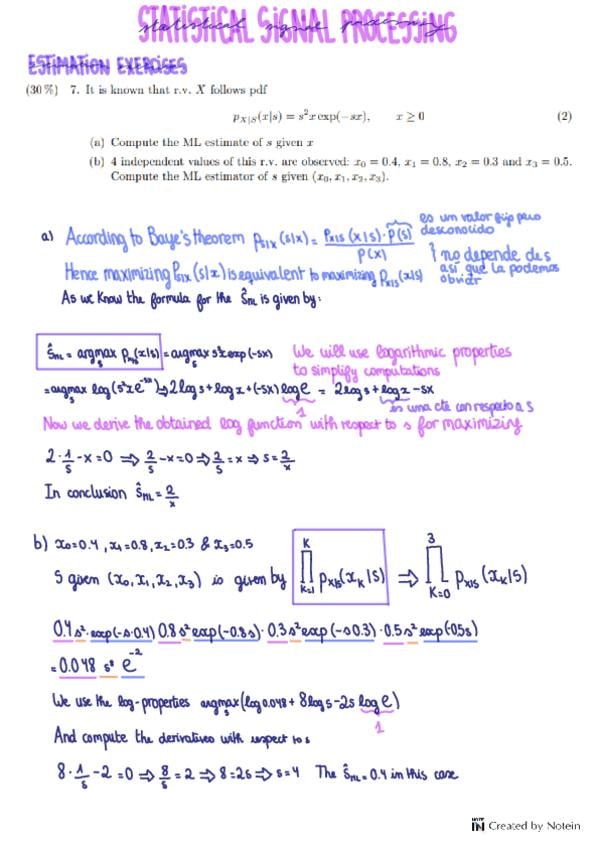 STATISTICAL SIGNAL PROCESSING
statistical signal processing
ESTIMATION EXERCISES
(30 %) 7. It is known that r.v. X follows pdf
p_{X|S}(x|s) = s²x exp(−sx), x ≥ 0 (2)
(a) Compute the ML estimate of s given x
(b) 4 independent values of this r.v. are observed: x₀ = 0.4, x₁ = 0.8, x₂ = 0.3 and x₃ = 0.5.
Compute the ML estimator of s given (x₀, x₁, x₂, x₃).
a) According to Baye's theorem p_{S|X}(s|x) = p_{X|S}(x|s)·p(s) / p(x)
es um valor fijo pero desconocido
Hence maximizing p_{S|X}(s|x) is equivalent to maximizing p_{X|S}(x|s)
no depende de s
así que la podemos
obviar
As we know the formula for the ŝ_ML is given by:
ŝ_ML = argmax_s p_{X|S}(x|s) = argmax_s s²x exp(-sx) We will use logarithmic properties
to simplify computations
= argmax_s log(s²xe^{-sx}) ⇒ 2 log s + log x + (-sx) log e = 2 log s + log x - sx
1 es una cte con respecto a s
Now we derive the obtained log function with respect to s for maximizing
2·1/s - x = 0 ⇒ 2/s - x = 0 ⇒ 2/s = x ⇒ s = 2/x
In conclusion ŝ_ML = 2/x
b) x₀=0.4, x₁=0.8, x₂=0.3 & x₃=0.5
S given (x₀, x₁, x₂, x₃) is given by ∏_{K=1}^{K} p_{X|S}(x_K|s) ⇒ ∏_{K=0}^{3} p_{X|S}(x_K|s)
0.4s²·exp(-s·0.4) 0.8s² exp(-0.8s)· 0.3s² exp(-s0.3)·0.5s² exp(-0.5s)
= 0.048 s⁸ e^{-2}
We use the log-properties argmax_s (log 0.048 + 8 log s - 2s log e)
1
And compute the derivatives with respect to s
8·1/s - 2 = 0 ⇒ 8/s = 2 ⇒ 8 = 2s ⇒ s = 4 The ŝ_ML = 0.4 in this case
Created by Notein